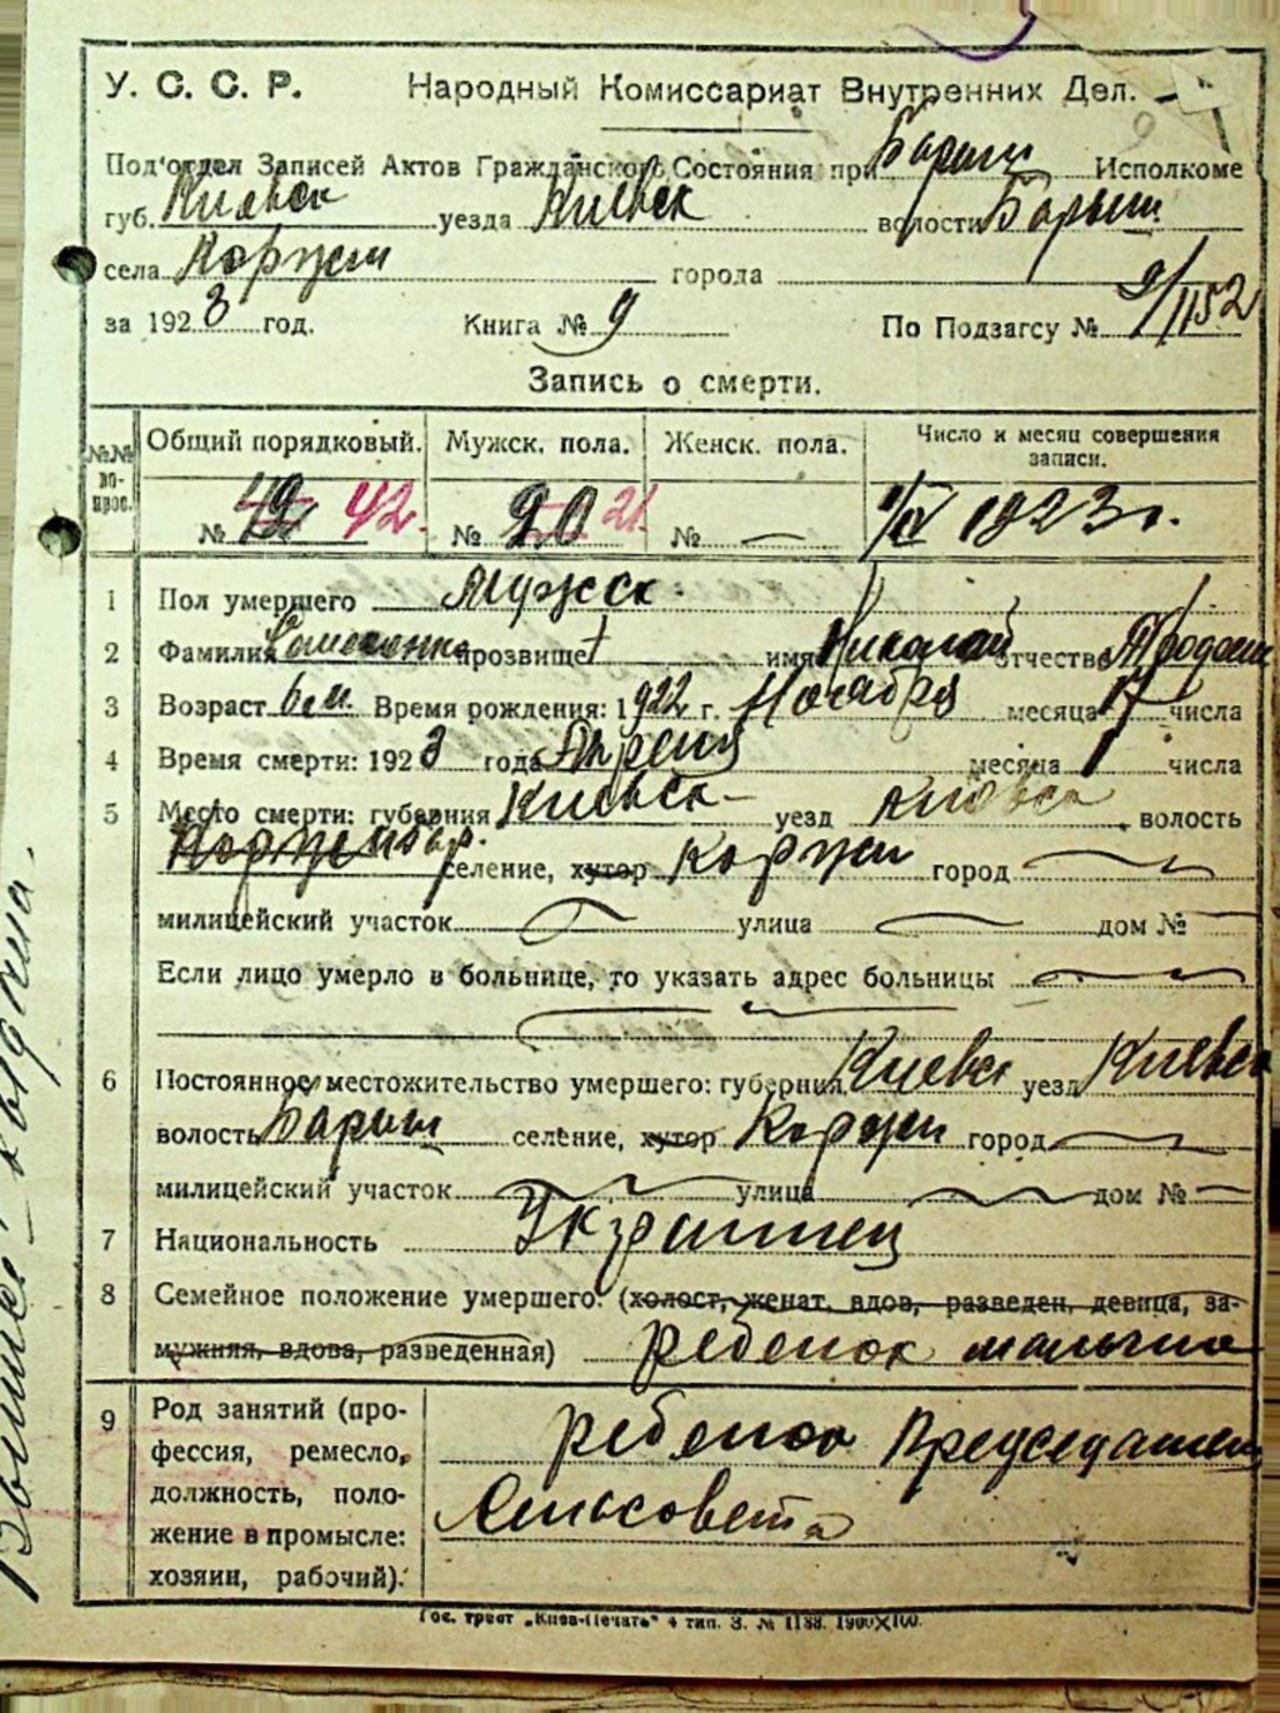 У. С. С. Р. Народный Комиссариат Внутренних Дел.
Под'отдел Записей Актов Гражданского Состояния при Барыш Исполкоме
губ. Киевск уезда Киевск волости Барыш
села Коржи города
за 1923 год. Книга № 9 По Подзагсу № 9/1152
Запись о смерти.
№№ во-прос. Общий порядковый. Мужск. пола. Женск. пола. Число и месяц совершения записи.
№ 42. № 20 21 № — 1923 г.
1 Пол умершего Мужск.
2 Фамилия прозвище имя Николай отчество
3 Возраст 6 м. Время рождения: 1922 г. Ноября месяца 17 числа
4 Время смерти: 1923 года Апреля месяца 1 числа
5 Место смерти: губерния Киевск уезд Киевск волость
селение, хутор Коржи город
милицейский участок улица дом №
Если лицо умерло в больнице, то указать адрес больницы
6 Постоянное местожительство умершего: губерния Киевск уезд Киевск
волость Барыш селение, хутор Коржи город
милицейский участок улица дом №
7 Национальность Украинец
8 Семейное положение умершего: (холост, женат, вдов, разведен, девица, за-
мужняя, вдова, разведенная) ребенок мальчик
9 Род занятий (про- ребенок Председателя
фессия, ремесло,
должность, поло- Сельсовета
жение в промысле:
хозяин, рабочий).
Гос. трест „Киев-Печать“ 4 тип. З. № 1188. 1900×100.